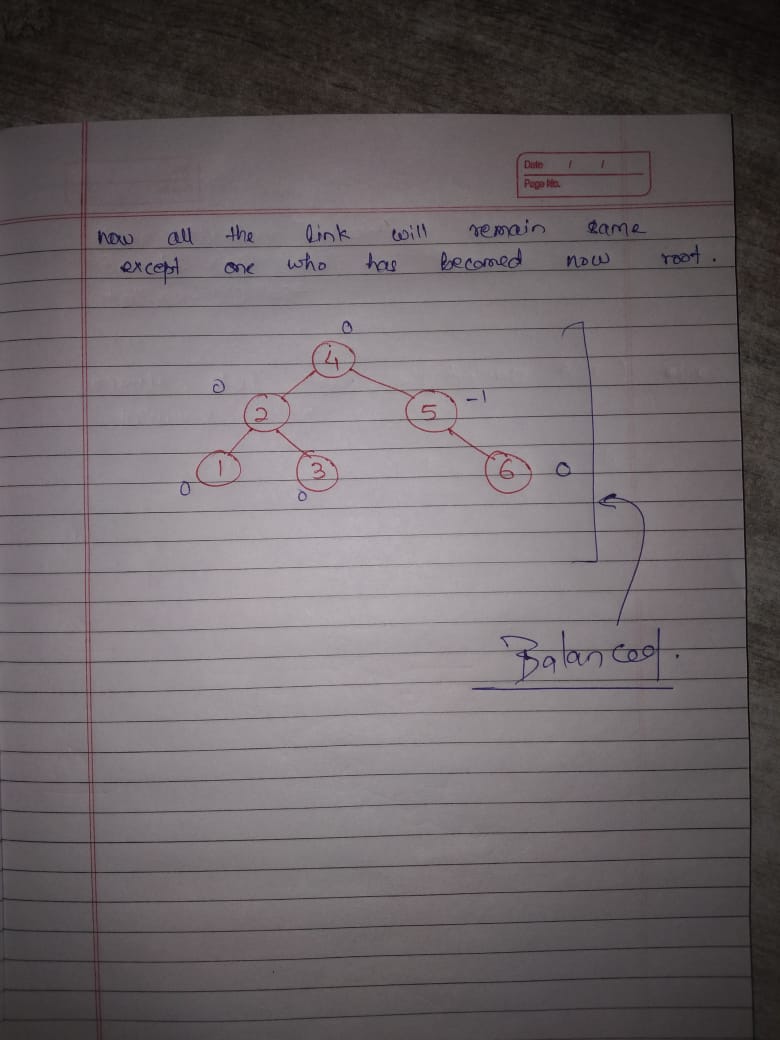 Date / /
Page No.
now all the link will remain same
except one who has becomed now root.
0
4
0
2
5 -1
1
3
6 0
0
0
Balanced.